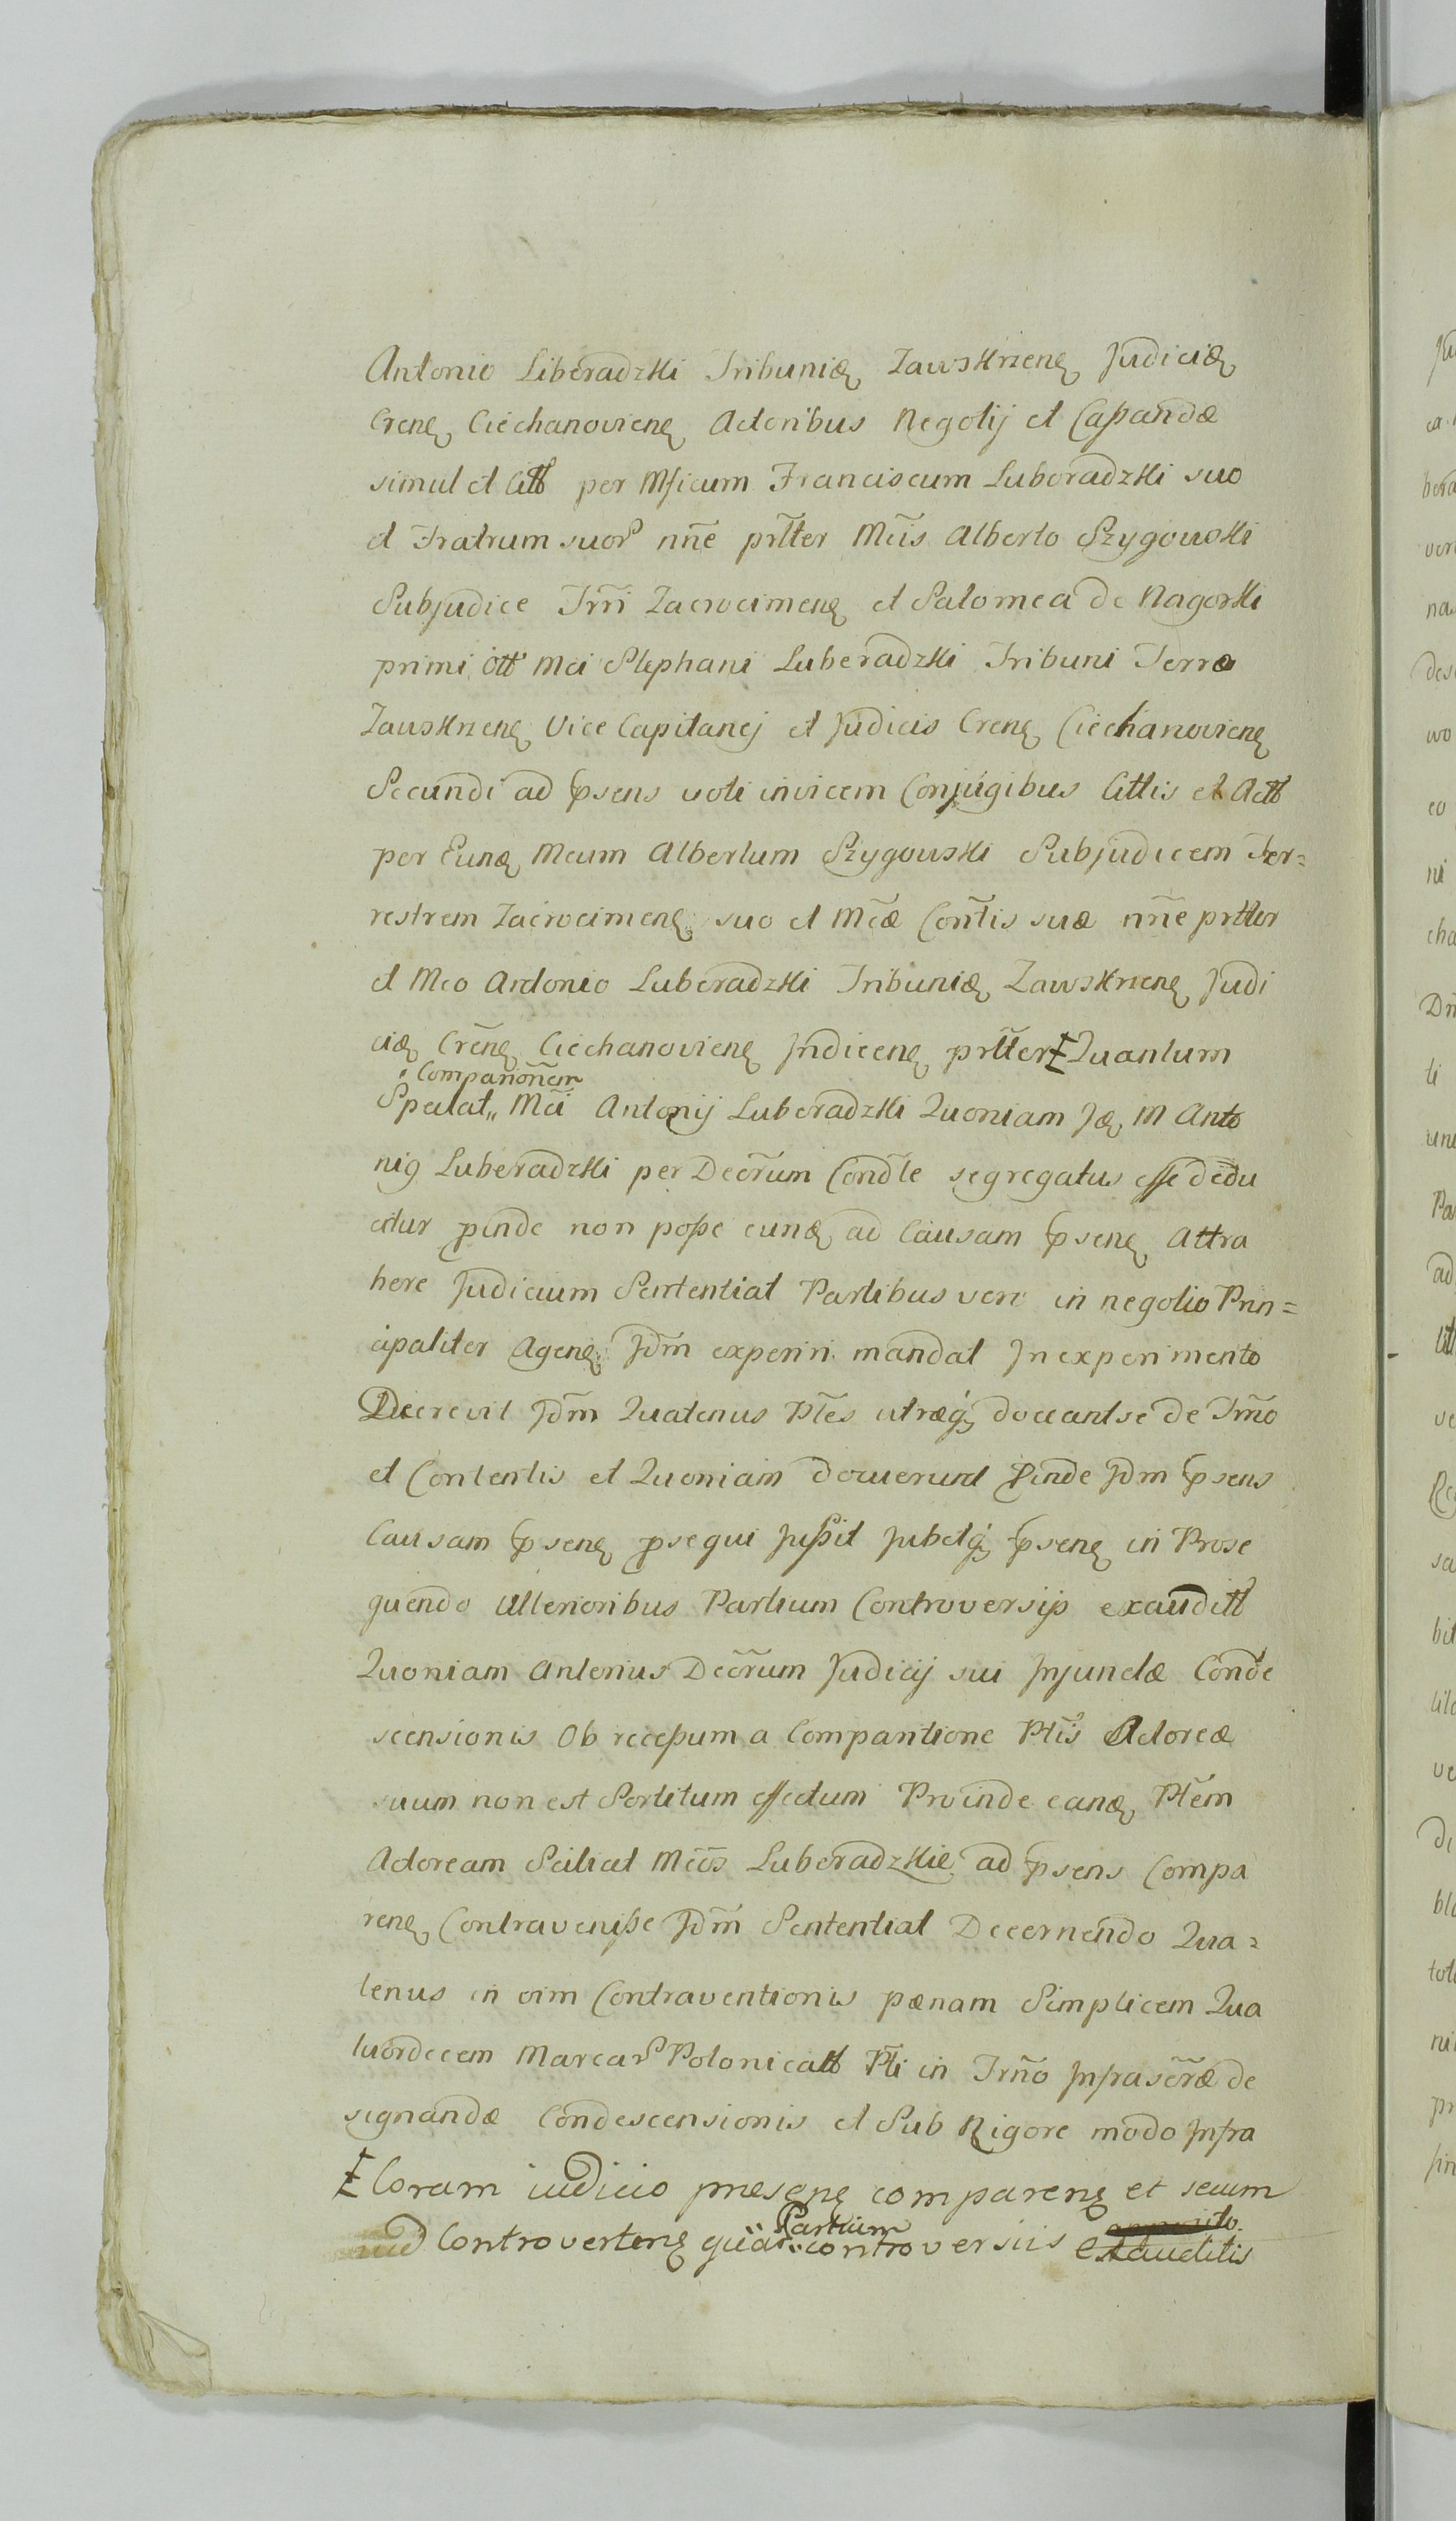 Antonio Liberadzki Tribunidę Zawskrzenę Judicidę
Crenę Ciechanovienę Actoribus Negotij et Capandæ
simul et Citt per Mficum Franciscum Luboradzki suo
et Fratrum suor nñe prltter Mcis Alberto Szygowski
Subjudice Trri Zacrocimenę et Salomea de Nagorski
primi ott Mci Stephani Luberadzki Tribuni Terræ
Zawskrzenę Vice Capitanej et Judicis Crenę Ciechanovienę
Secundi ad pṡens voti invicem Conjúgibus Cittis et Actt
per Eundę Mcum Albertum Szygowski Subjudicem Ter=
restrem Zacrocimenę suo et Mcæ Contis suæ nñe prltter
et Mco Antonio Luberadzki Tribunidę Zawskrzenę Judi
cidę Crenę Ciechanovienę Indicenę prltter Ł Quantum
Comparitionem
Spectat„ Mci Antonij Luberadzki Quoniam Idę M Anto
nig Luberadzki per Decrum Condle segregatus esse dedu
citur pinde non posse eundę ad Causam psenę Attra
here Judicium Sententiat Partibus vero in negotio Prin=
cipaliter Agenę Jdm experiri mandat In experimento
Decrevit Jdm Quatenus Ptes utræq doceant se de Trno
et Contentis et Quoniam docuerunt Pinde Jdm psens
Causam psenę psequi jussit jubetq psenę in Prose
quendo Ulterioribus Partium Controversijs exauditt
Quoniam Anterius Decrum Judicij sui Injunctæ Conde
scensionis Ob recessum a Comparitione Ptis Actoreæ
suum non est Sortitum effectum Proinde eandę Ptem
Actoream Scilicet Mcos Luberadzkie ad psens Compa
renę Contravenisse Jdm Sententiat Decernendo Qua=
tenus in vim Contraventionis pænam Simplicem Qua
tuordecem Marcar Polonicatt Pti in Trno Infrascræ de
signandæ Condescensionis et Sub Rigore modo Infra
Ł Coram iudicio præsenę comparenę et secum
Controvertenę quar Partium controversiis exauditis